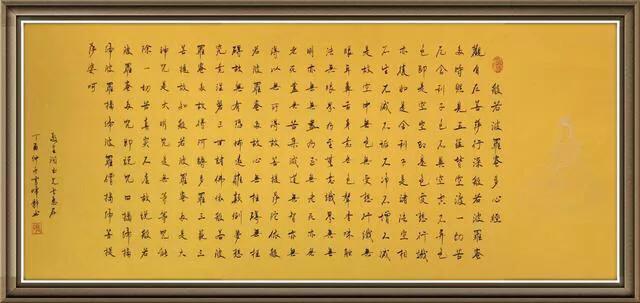 般若波羅蜜多心經
觀自在菩薩行深般若波羅蜜
多時照見五蘊皆空度一切苦
厄舍利子色不異空空不異色
色即是空空即是色受想行識
亦復如是舍利子是諸法空相
不生不滅不垢不淨不增不減
是故空中無色無受想行識無
眼耳鼻舌身意無色聲香味觸
法無眼界乃至無意識界無無
明亦無無盡乃至無老死亦無
老死盡無苦集滅道無智亦無
得以無所得故菩提薩埵依般
若波羅蜜多故心無罣礙無罣
礙故無有恐怖遠離顛倒夢想
究竟涅槃三世諸佛依般若波
羅蜜多故得阿耨多羅三藐三
菩提故知般若波羅蜜多是大
神咒是大明咒是無等等咒能
除一切苦真實不虛故說般若
波羅蜜多咒即說咒曰揭諦揭
諦波羅揭諦波羅僧揭諦菩提
薩婆訶
先生惠存
丁酉仲